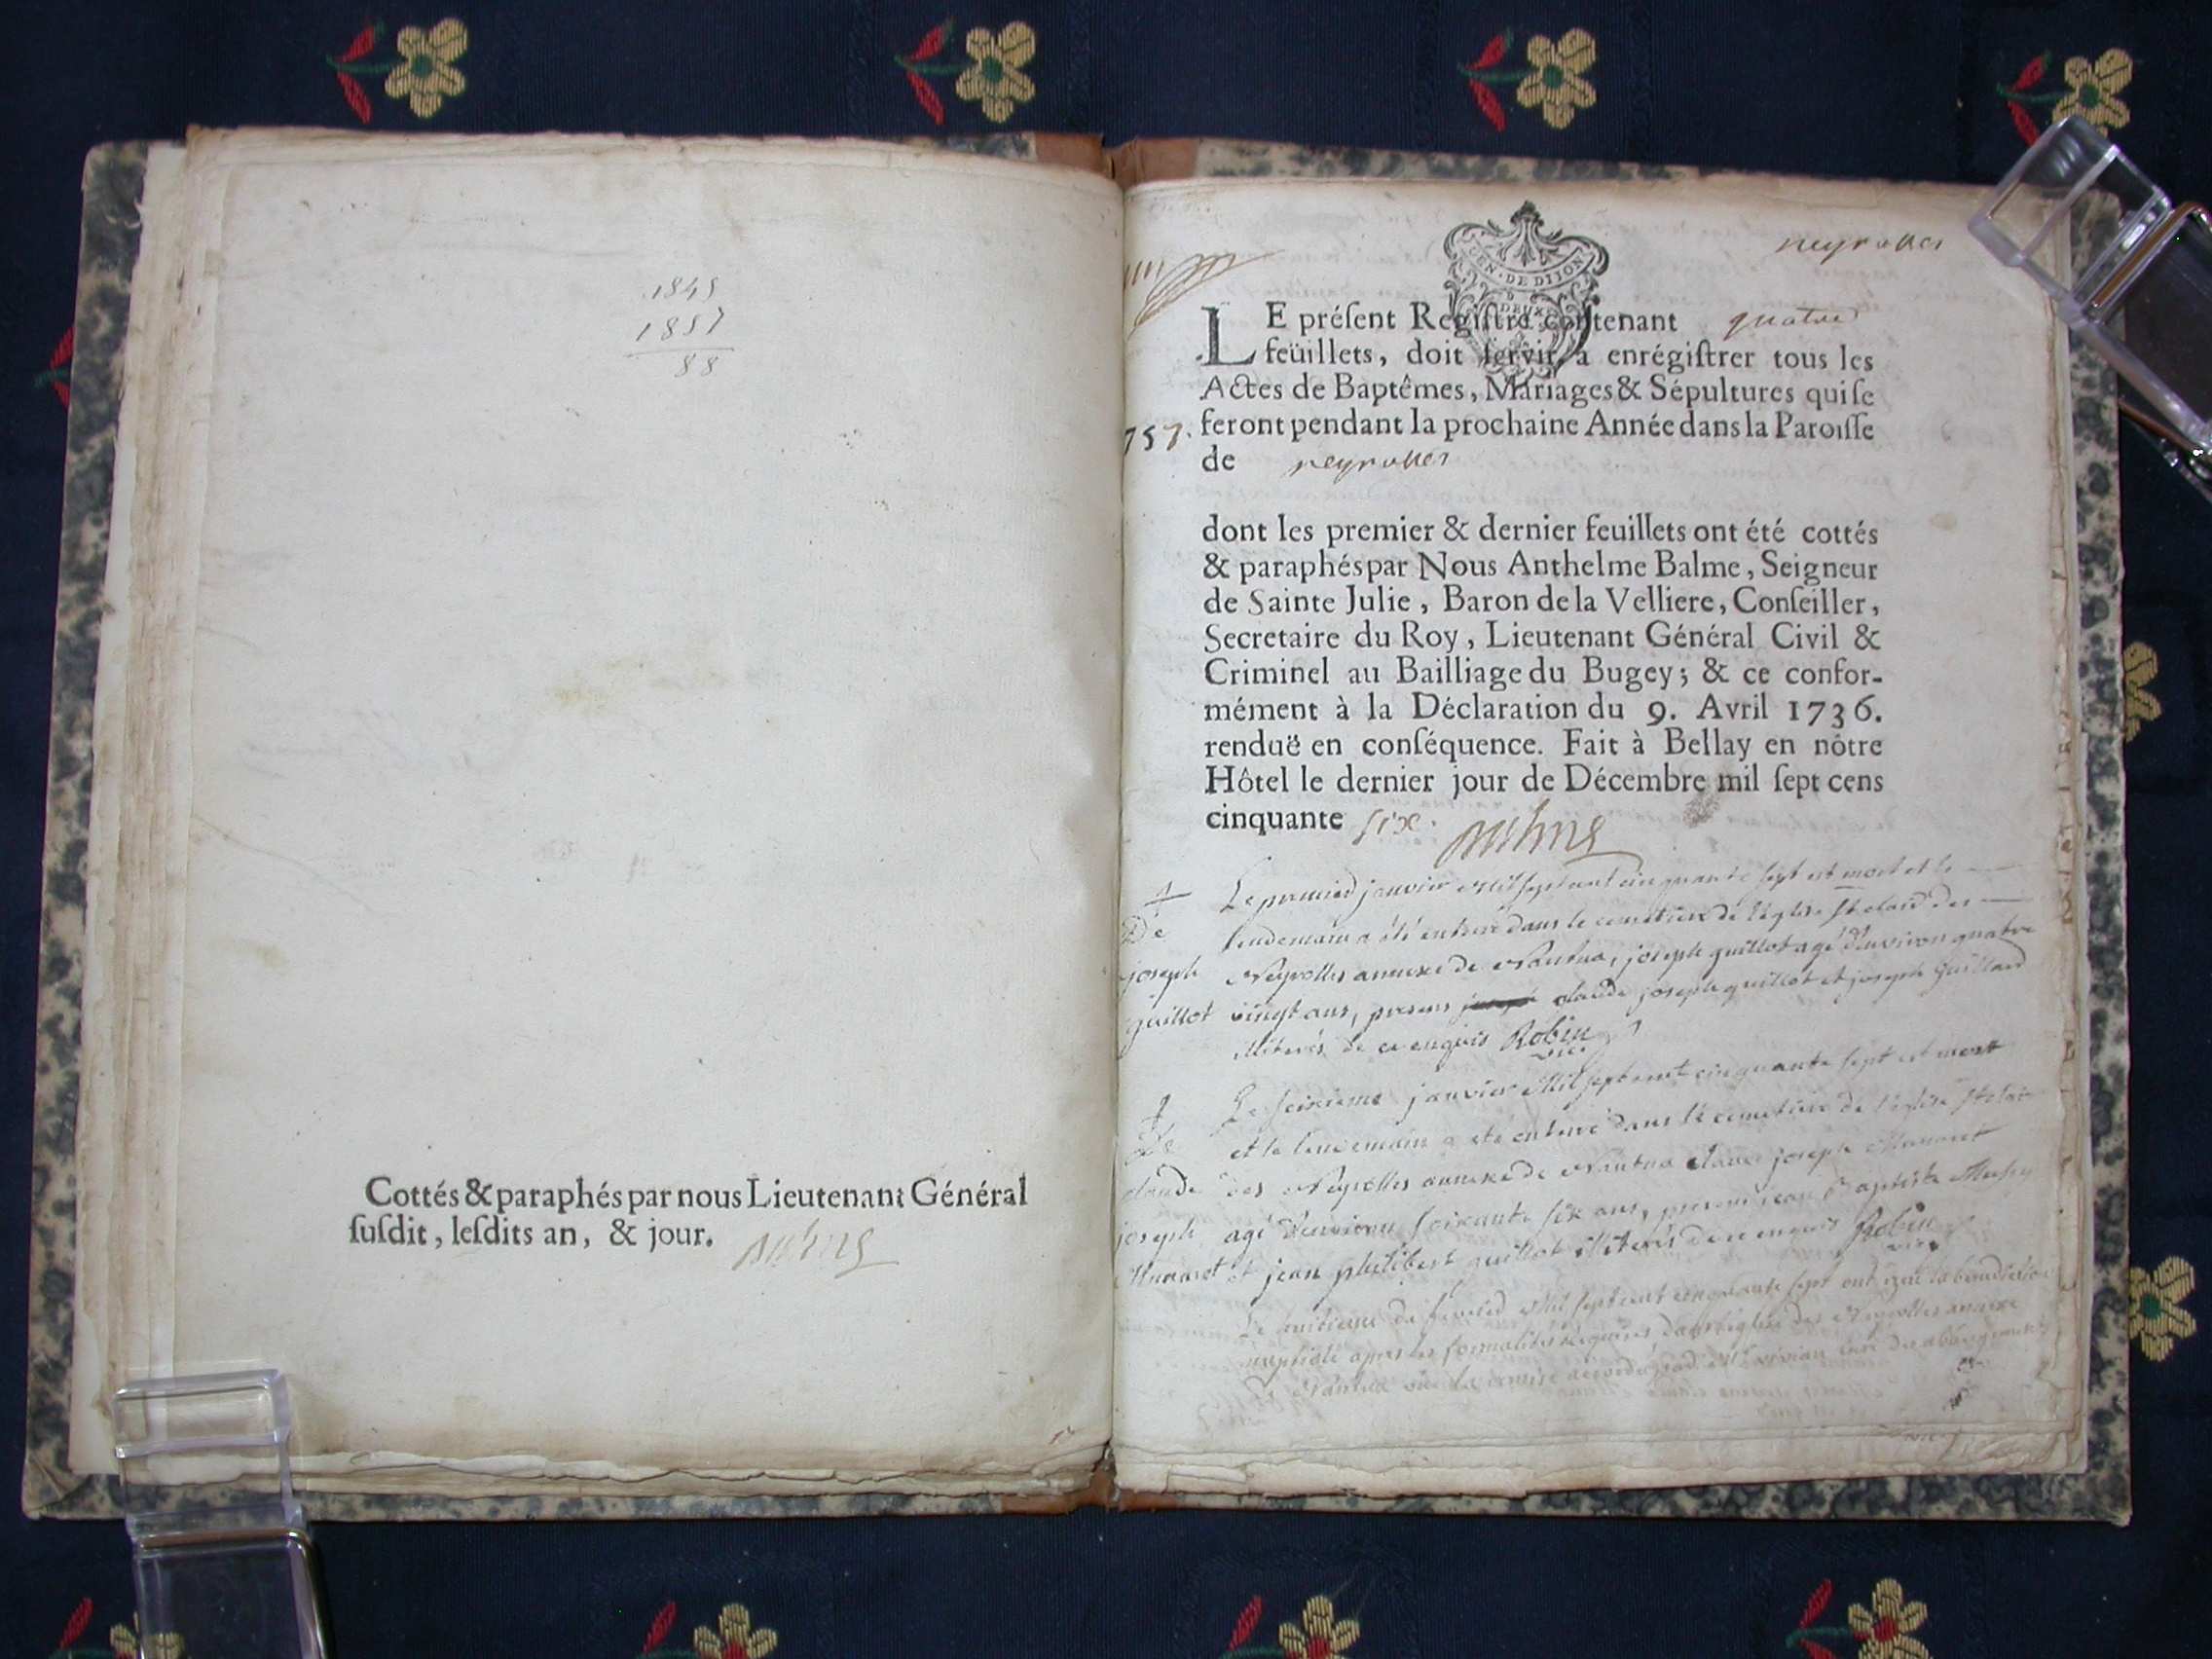 1849
1857
88
Cottés & paraphés par nous Lieutenant Général
ſuſdit, leſdits an, & jour.
neyrolles
GEN · DE DIJON
DEUX
LE préſent Regiſtre contenant quatre
feüillets, doit ſervir à enrégiſtrer tous les
Actes de Baptêmes, Mariages & Sépultures qui ſe
757. feront pendant la prochaine Année dans la Paroiſſe
de neyrolles
dont les premier & dernier feuillets ont été cottés
& paraphés par Nous Anthelme Balme, Seigneur
de Sainte Julie, Baron de la Velliere, Conſeiller,
Secretaire du Roy, Lieutenant Général Civil &
Criminel au Bailliage du Bugey; & ce confor-
mément à la Déclaration du 9. Avril 1736.
renduë en conſéquence. Fait à Bellay en nôtre
Hôtel le dernier jour de Décembre mil ſept cens
cinquante six.
Le premier janvier mil sept cent cinquante sept est mort et le
De lendemain a été enterré dans le cemetiere de l'église St claud des
joseph Neyrolles annexe de Nantua, joseph guillot agé d'environ quatre
guillot vingt ans, presens claude joseph guillot et joseph guilland
illiterés de ce enquis Robin vic.
Le seizieme janvier mil sept cent cinquante sept est mort
De et le lendemain a été enterré dans le cemetiere de l'église St
claude des Neyrolles annexe de Nantua claude joseph
joseph agé d'environ soixante six ans, presens jean Baptiste
et jean philibert guillot illiterés de ce enquis Robin vic.
Le huitieme de fevrier mil sept cent cinquante sept ont reçu la benediction
nuptiale apres les formalités requises dans l'église des Neyrolles annexe
Nantua